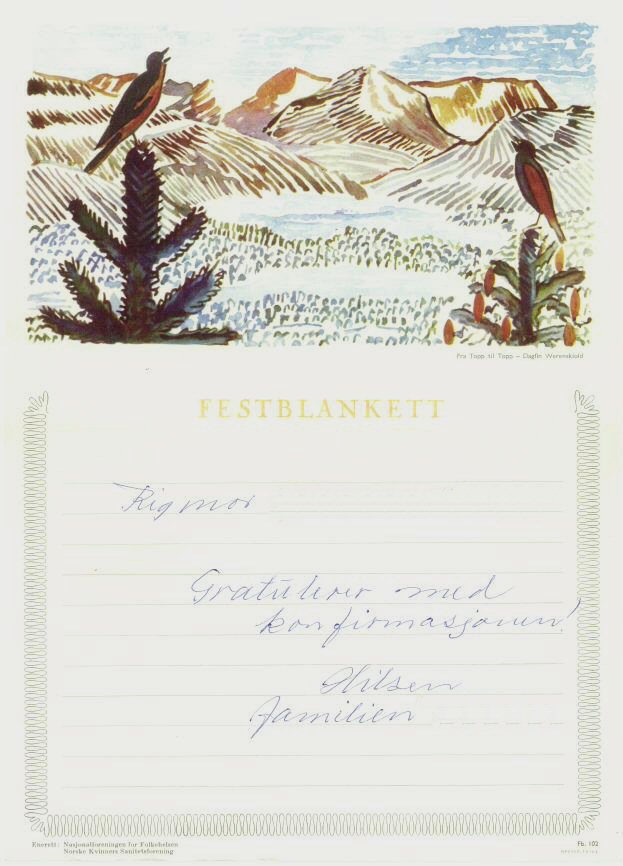 Fra Topp til Topp – Dagfin Werenskiold
FESTBLANKETT
Rigmor
Gratulerer med
konfirmasjonen!
Hilsen
Familien
Enerett: Nasjonalforeningen for Folkehelsen
Norske Kvinners Sanitetsforening
Fb. 102